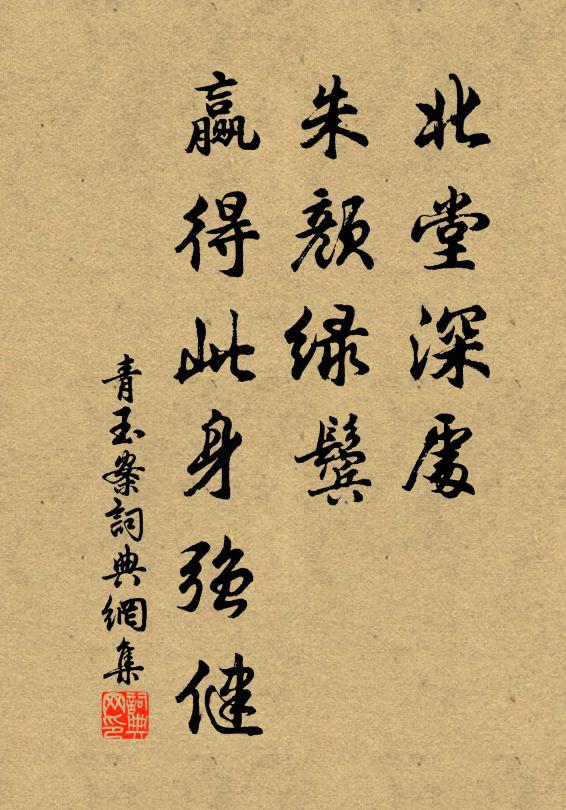 北堂深處
朱顏綠鬢
贏得此身強健
青玉案詞典網集
詞典網印